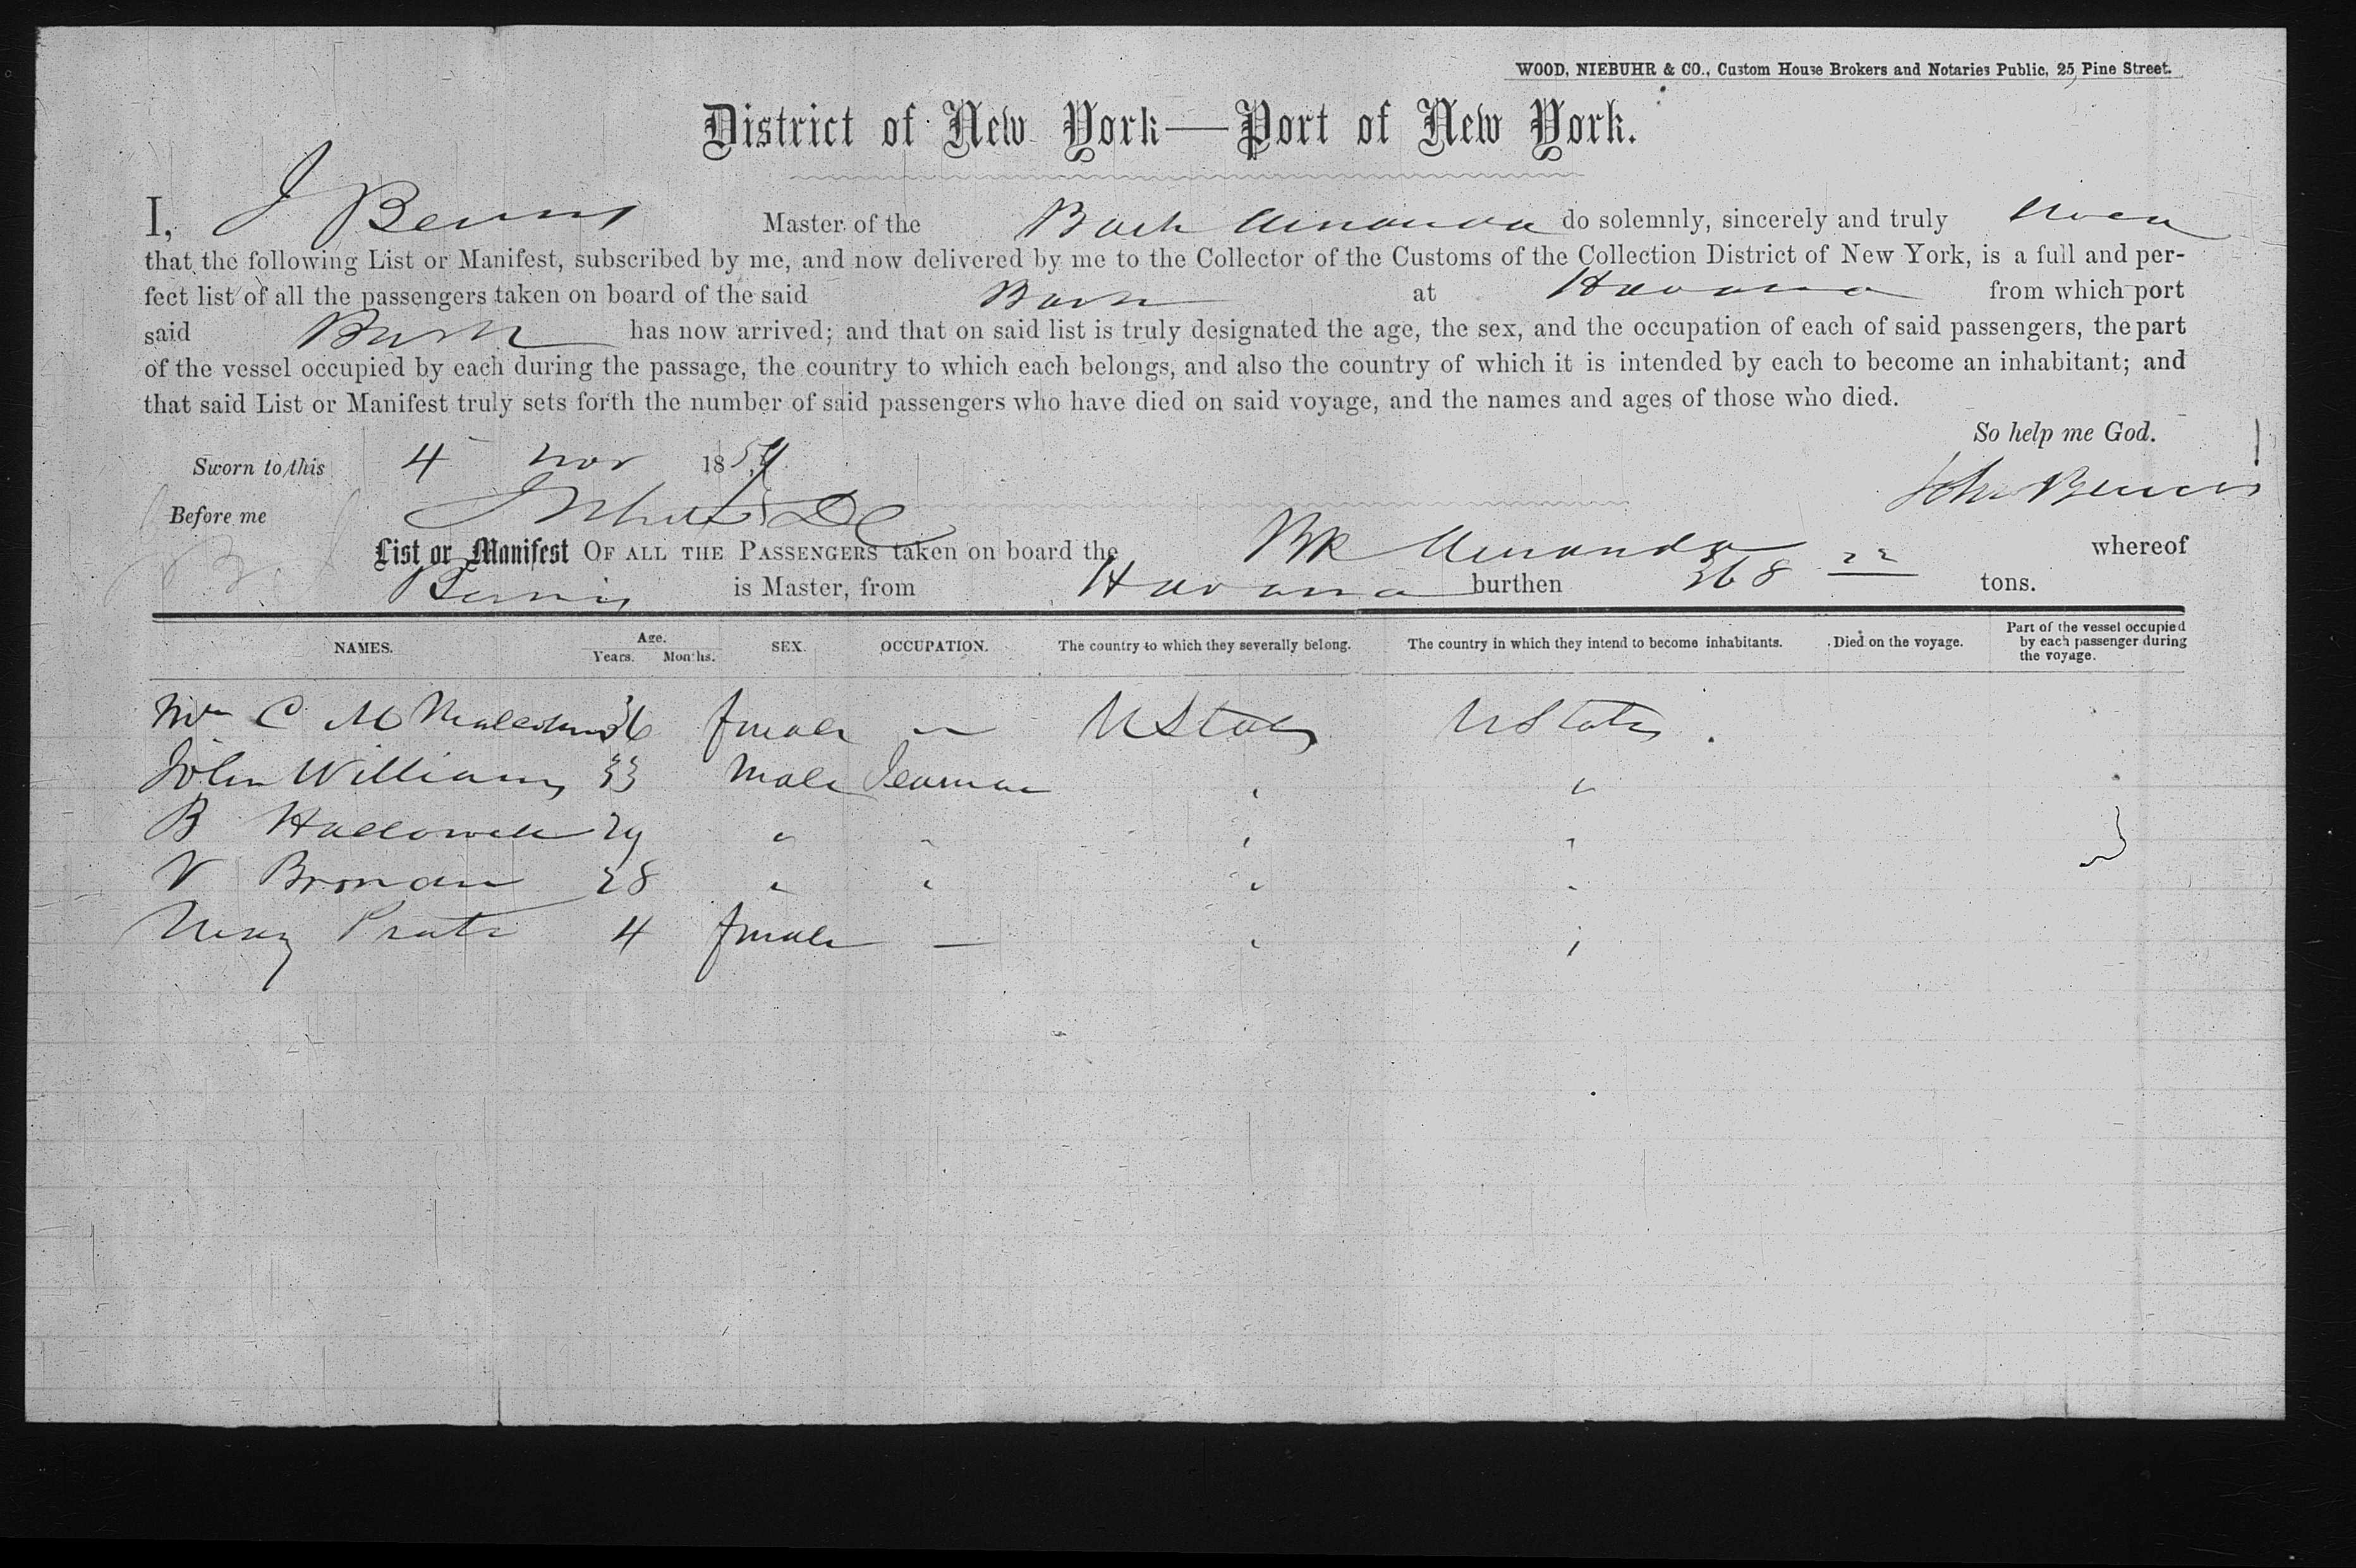 WOOD, NIEBUHR & CO., Custom House Brokers and Notaries Public, 25 Pine Street.
District of New York—Port of New York.
I, J Master of the Bark Amanda do solemnly, sincerely and truly swear
that the following List or Manifest, subscribed by me, and now delivered by me to the Collector of the Customs of the Collection District of New York, is a full and per-
fect list of all the passengers taken on board of the said Bark at Havana from which port
said Bark has now arrived; and that on said list is truly designated the age, the sex, and the occupation of each of said passengers, the part
of the vessel occupied by each during the passage, the country to which each belongs, and also the country of which it is intended by each to become an inhabitant; and
that said List or Manifest truly sets forth the number of said passengers who have died on said voyage, and the names and ages of those who died.
So help me God.
Sworn to this 4 Nov 18
John
Before me
List or Manifest OF ALL THE PASSENGERS taken on board the Bk Amanda whereof
is Master, from Havana burthen 368 22 tons.
NAMES. Age. Years. Months. SEX. OCCUPATION. The country to which they severally belong. The country in which they intend to become inhabitants. Died on the voyage. Part of the vessel occupied by each passenger during the voyage.
Mrs C M 36 female — U States U States
John Williams 33 Male Seaman " "
B Hallowell 29 " " " "
V 28 " " " "
4 female — " "